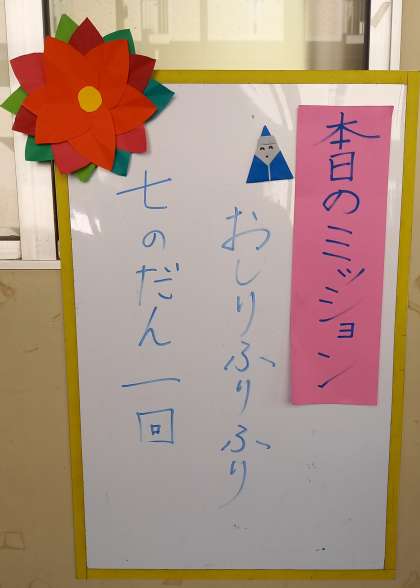 本日のミッション
おしりふりふり
七のだん一回